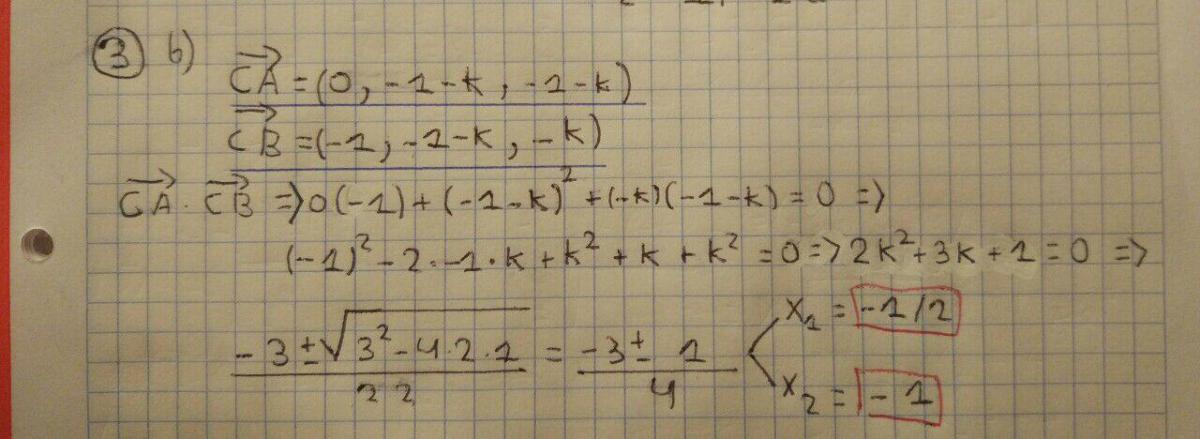 ③ b)
CA = (0, -1-k, -1-k)
CB = (-1, -1-k, -k)
CA · CB => 0(-1) + (-1-k)² + (-k)(-1-k) = 0 =>
(-1)² - 2·-1·k + k² + k + k² = 0 => 2k² + 3k + 1 = 0 =>
-3 ± √3² - 4·2·1 / 2 2 = -3 ± 1 / 4
x₁ = -1/2
x₂ = -1